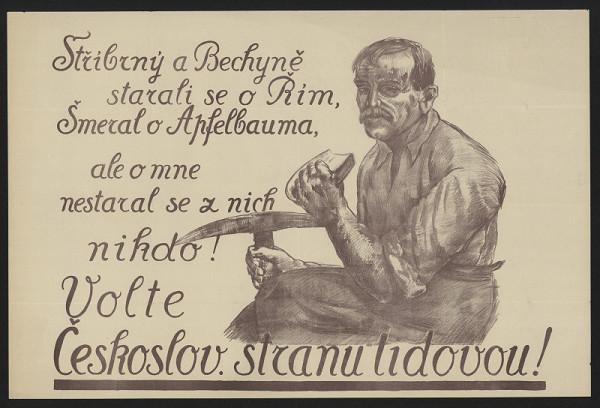 Stříbrný a Bechyně
starali se o Řím,
Šmeral o Apfelbauma,
ale o mne
nestaral se z nich
nikdo!
Volte
Českoslov. stranu lidovou!